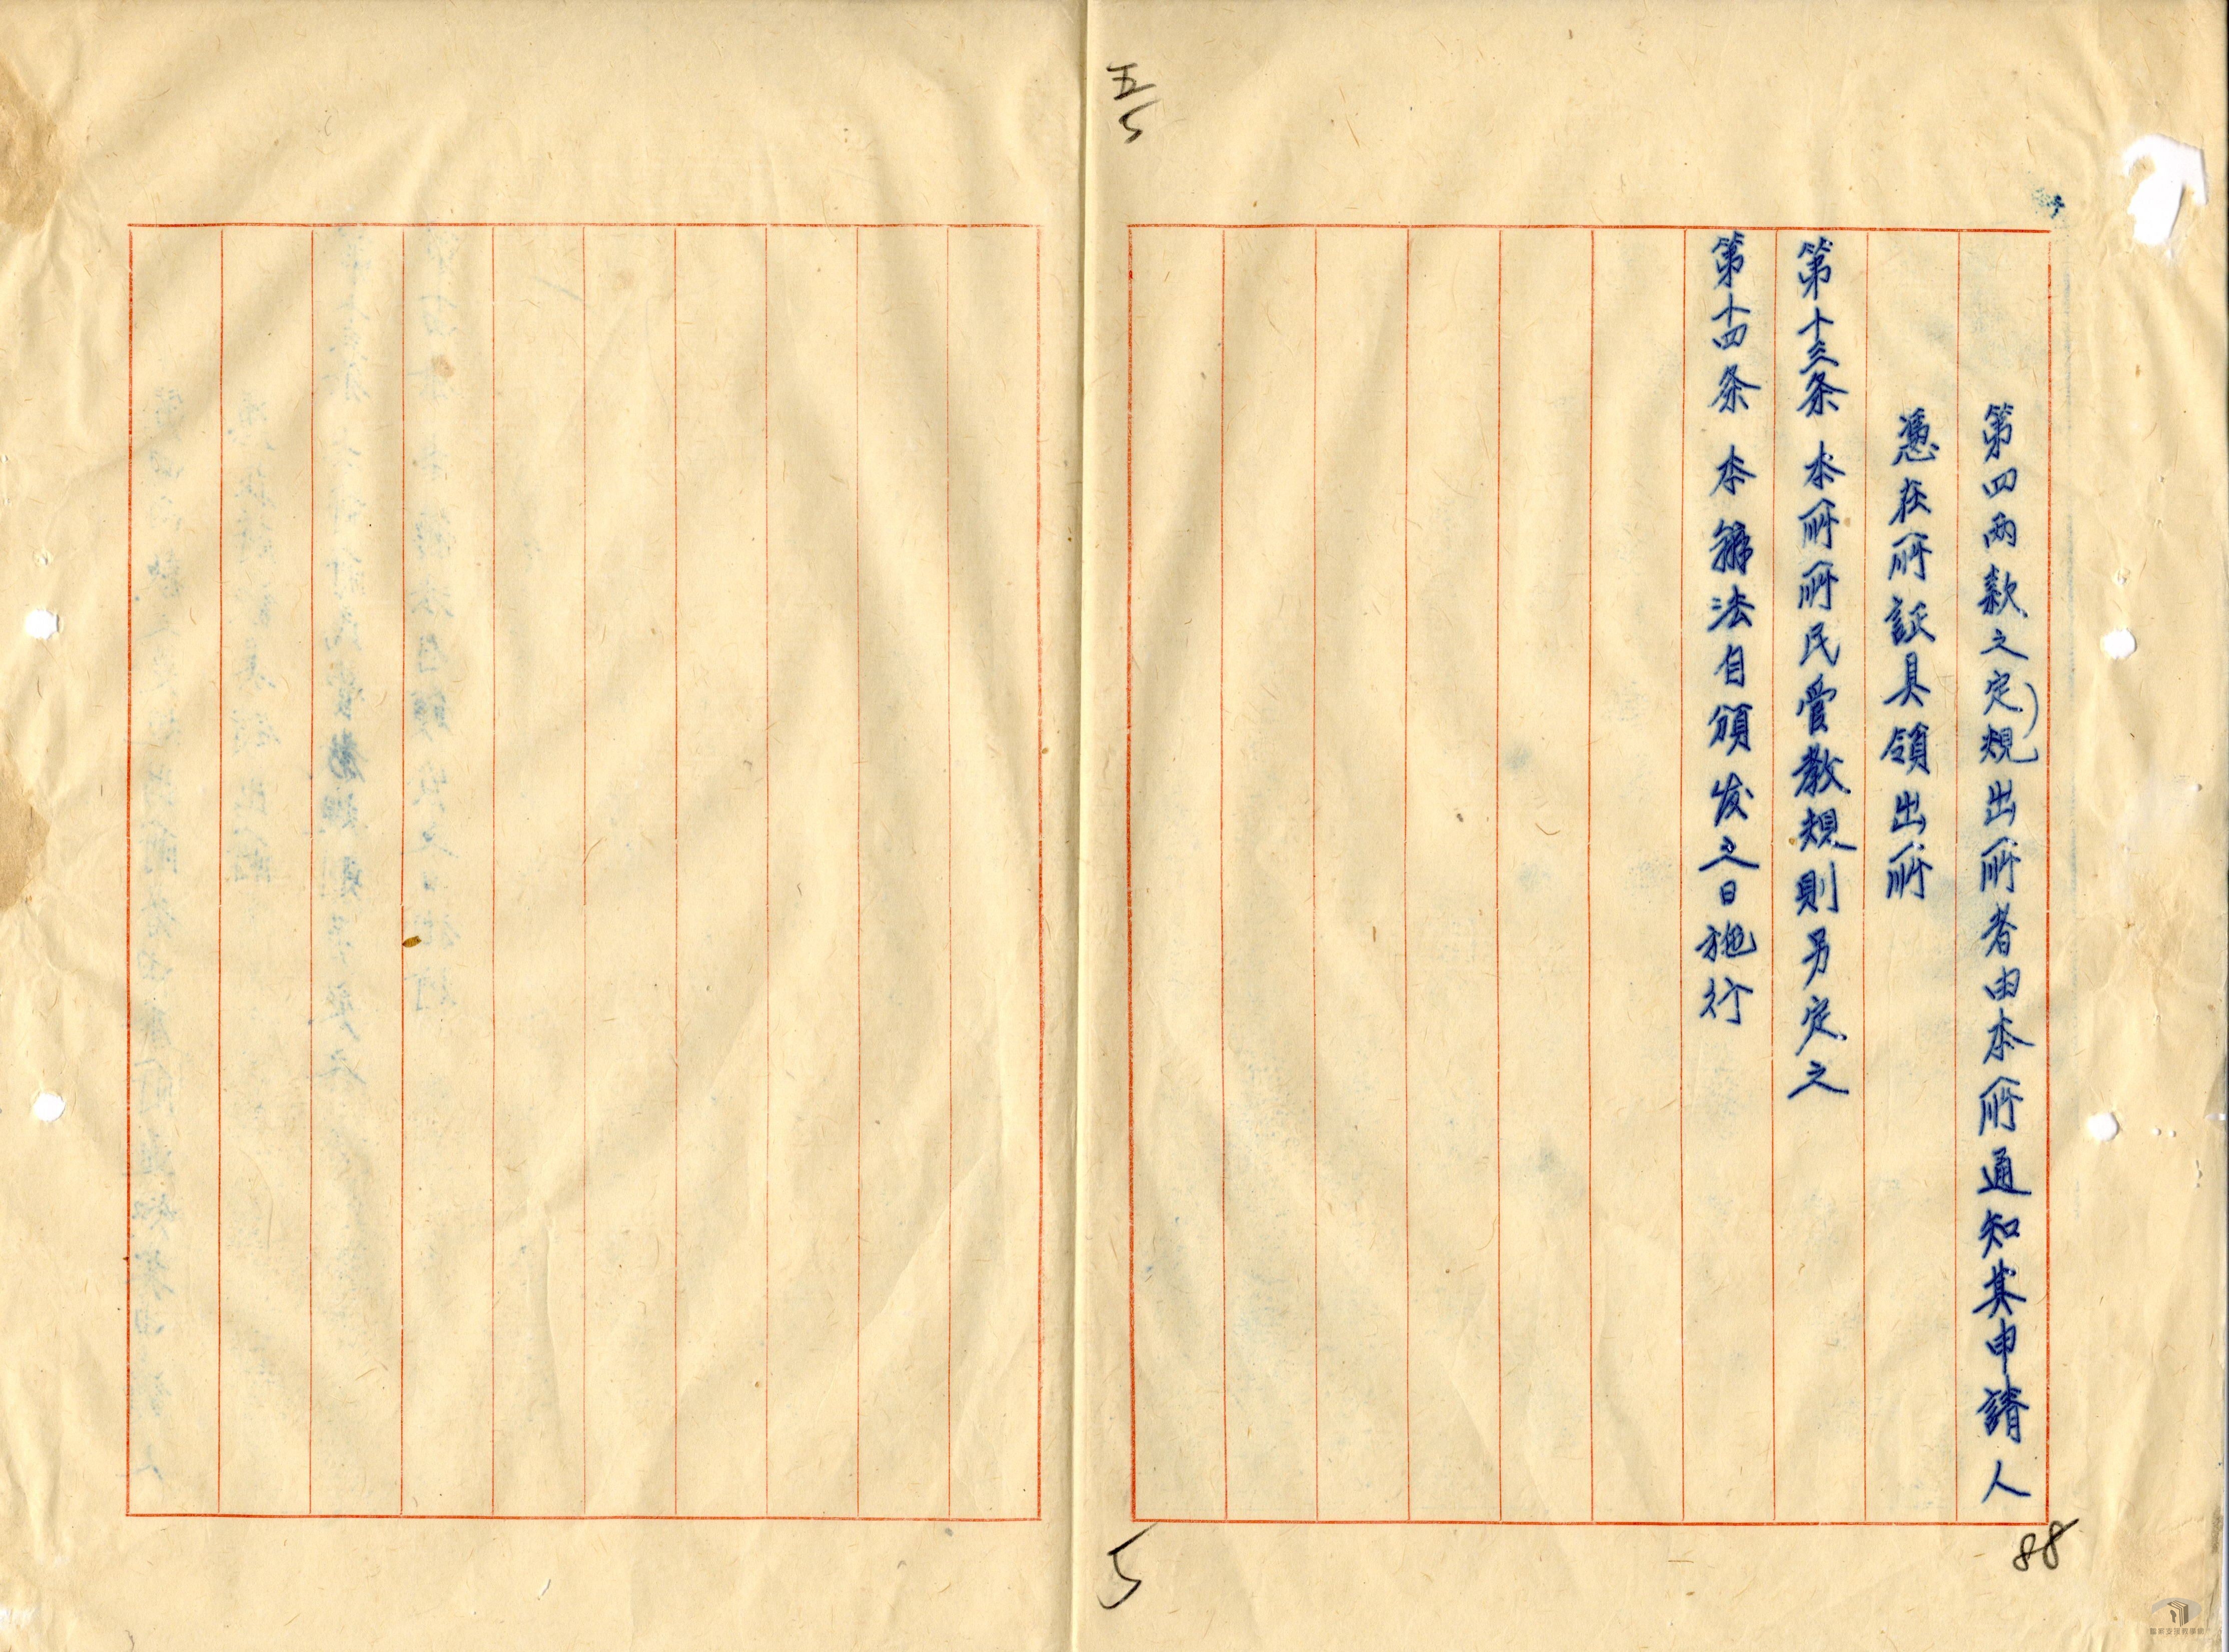 第四兩款之定規出所者由本所通知其申請人
憑在所証具領出所
第十三条 本所所民管教規則另定之
第十四条 本辦法自頒发之日施行
五
5
5
88